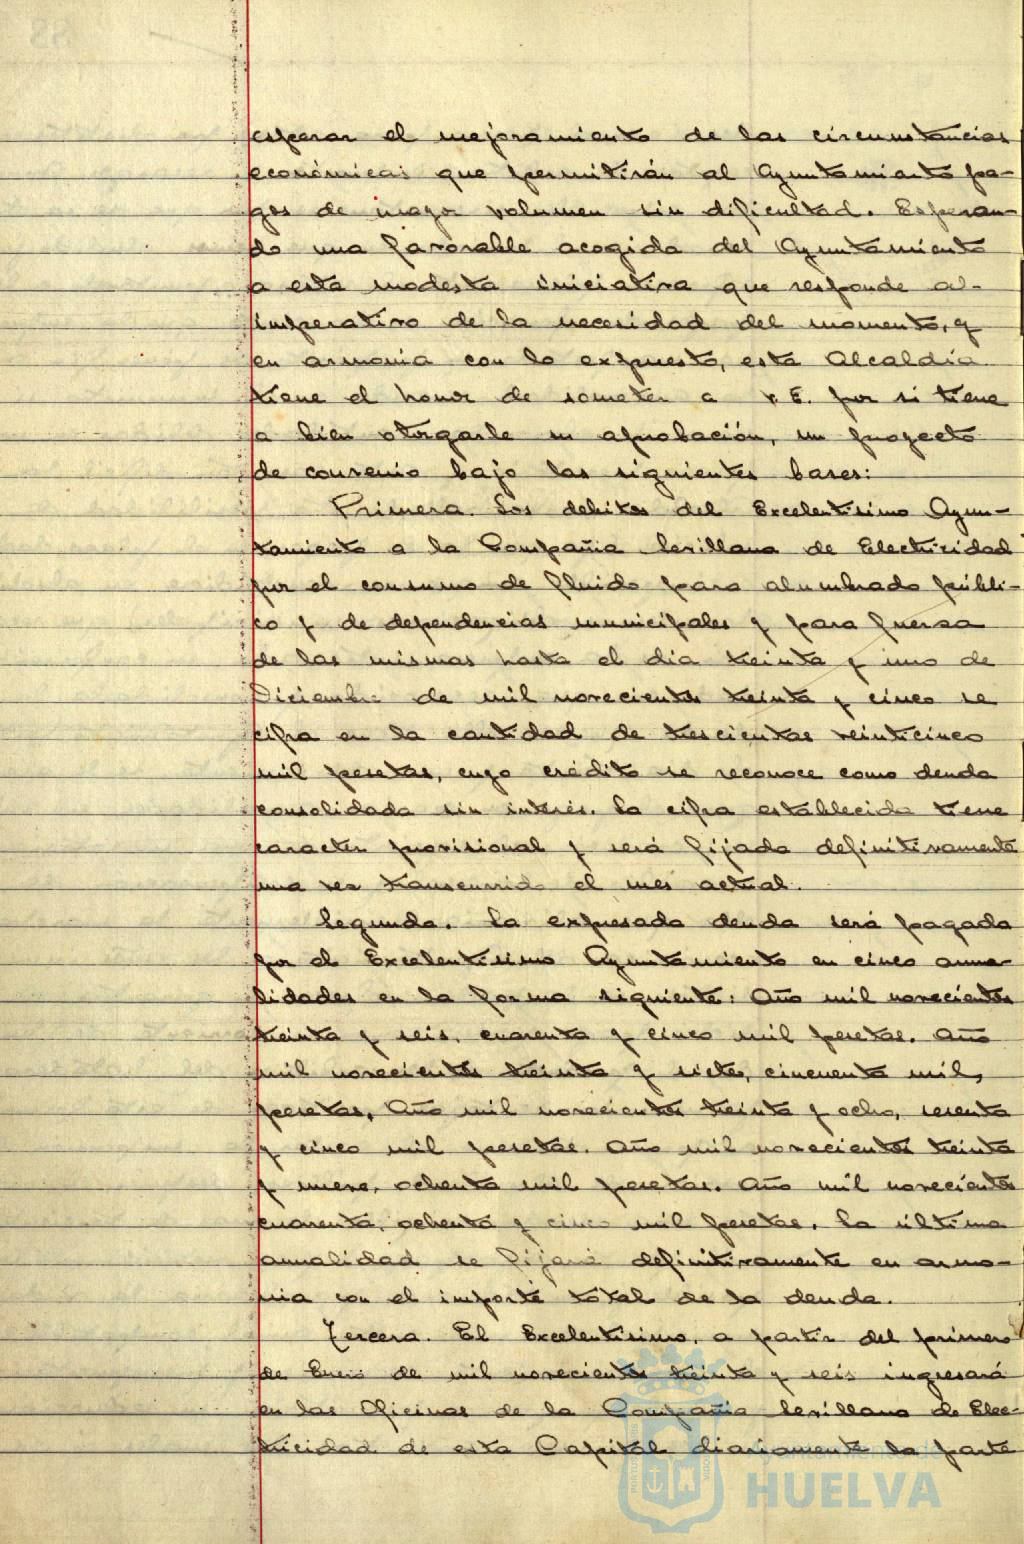 esperar el mejoramiento de las circunstancias
económicas que permitirán al Ayuntamiento pa-
gos de mayor volumen sin dificultad. Esperan-
do una favorable acogida del Ayuntamiento
a esta modesta iniciativa que responde al
imperativo de la necesidad del momento, y
en armonía con lo expuesto, esta Alcaldía
tiene el honor de someter a V.E. por si tiene
a bien otorgarle su aprobación, un proyecto
de convenio bajo las siguientes bases:
Primera. Los debitos del Excelentísimo Ayun-
tamiento a la Compañia Sevillana de Electricidad
por el consumo de fluido para alumbrado públi-
co y de dependencias municipales y para fuerza
de las mismas hasta el dia treinta y uno de
Diciembre de mil novecientos treinta y cinco se
cifra en la cantidad de trescientas veinticinco
mil pesetas, cuyo crédito se reconoce como deuda
consolidada sin interés. La cifra establecida tiene
caracter provisional y será fijada definitivamente
una vez transcurrido el mes actual.
Segunda. La expresada deuda será pagada
por el Excelentísimo Ayuntamiento en cinco anua-
lidades en la forma siguiente: Año mil novecientos
treinta y seis, cuarenta y cinco mil pesetas. Año
mil novecientos treinta y siete, cincuenta mil
pesetas. Año mil novecientos treinta y ocho, sesenta
y cinco mil pesetas. Año mil novecientos treinta
y nueve, ochenta mil pesetas. Año mil novecientos
cuarenta, ochenta y cinco mil pesetas. La última
anualidad se fijará definitivamente en armo-
nia con el importe total de la deuda.
Tercera. El Excelentísimo, a partir del primero
de Enero de mil novecientos treinta y seis ingresará
en las Oficinas de la Compañia Sevillana de Elec-
tricidad de esta Capital diariamente la parte
Ayuntamiento de
HUELVA